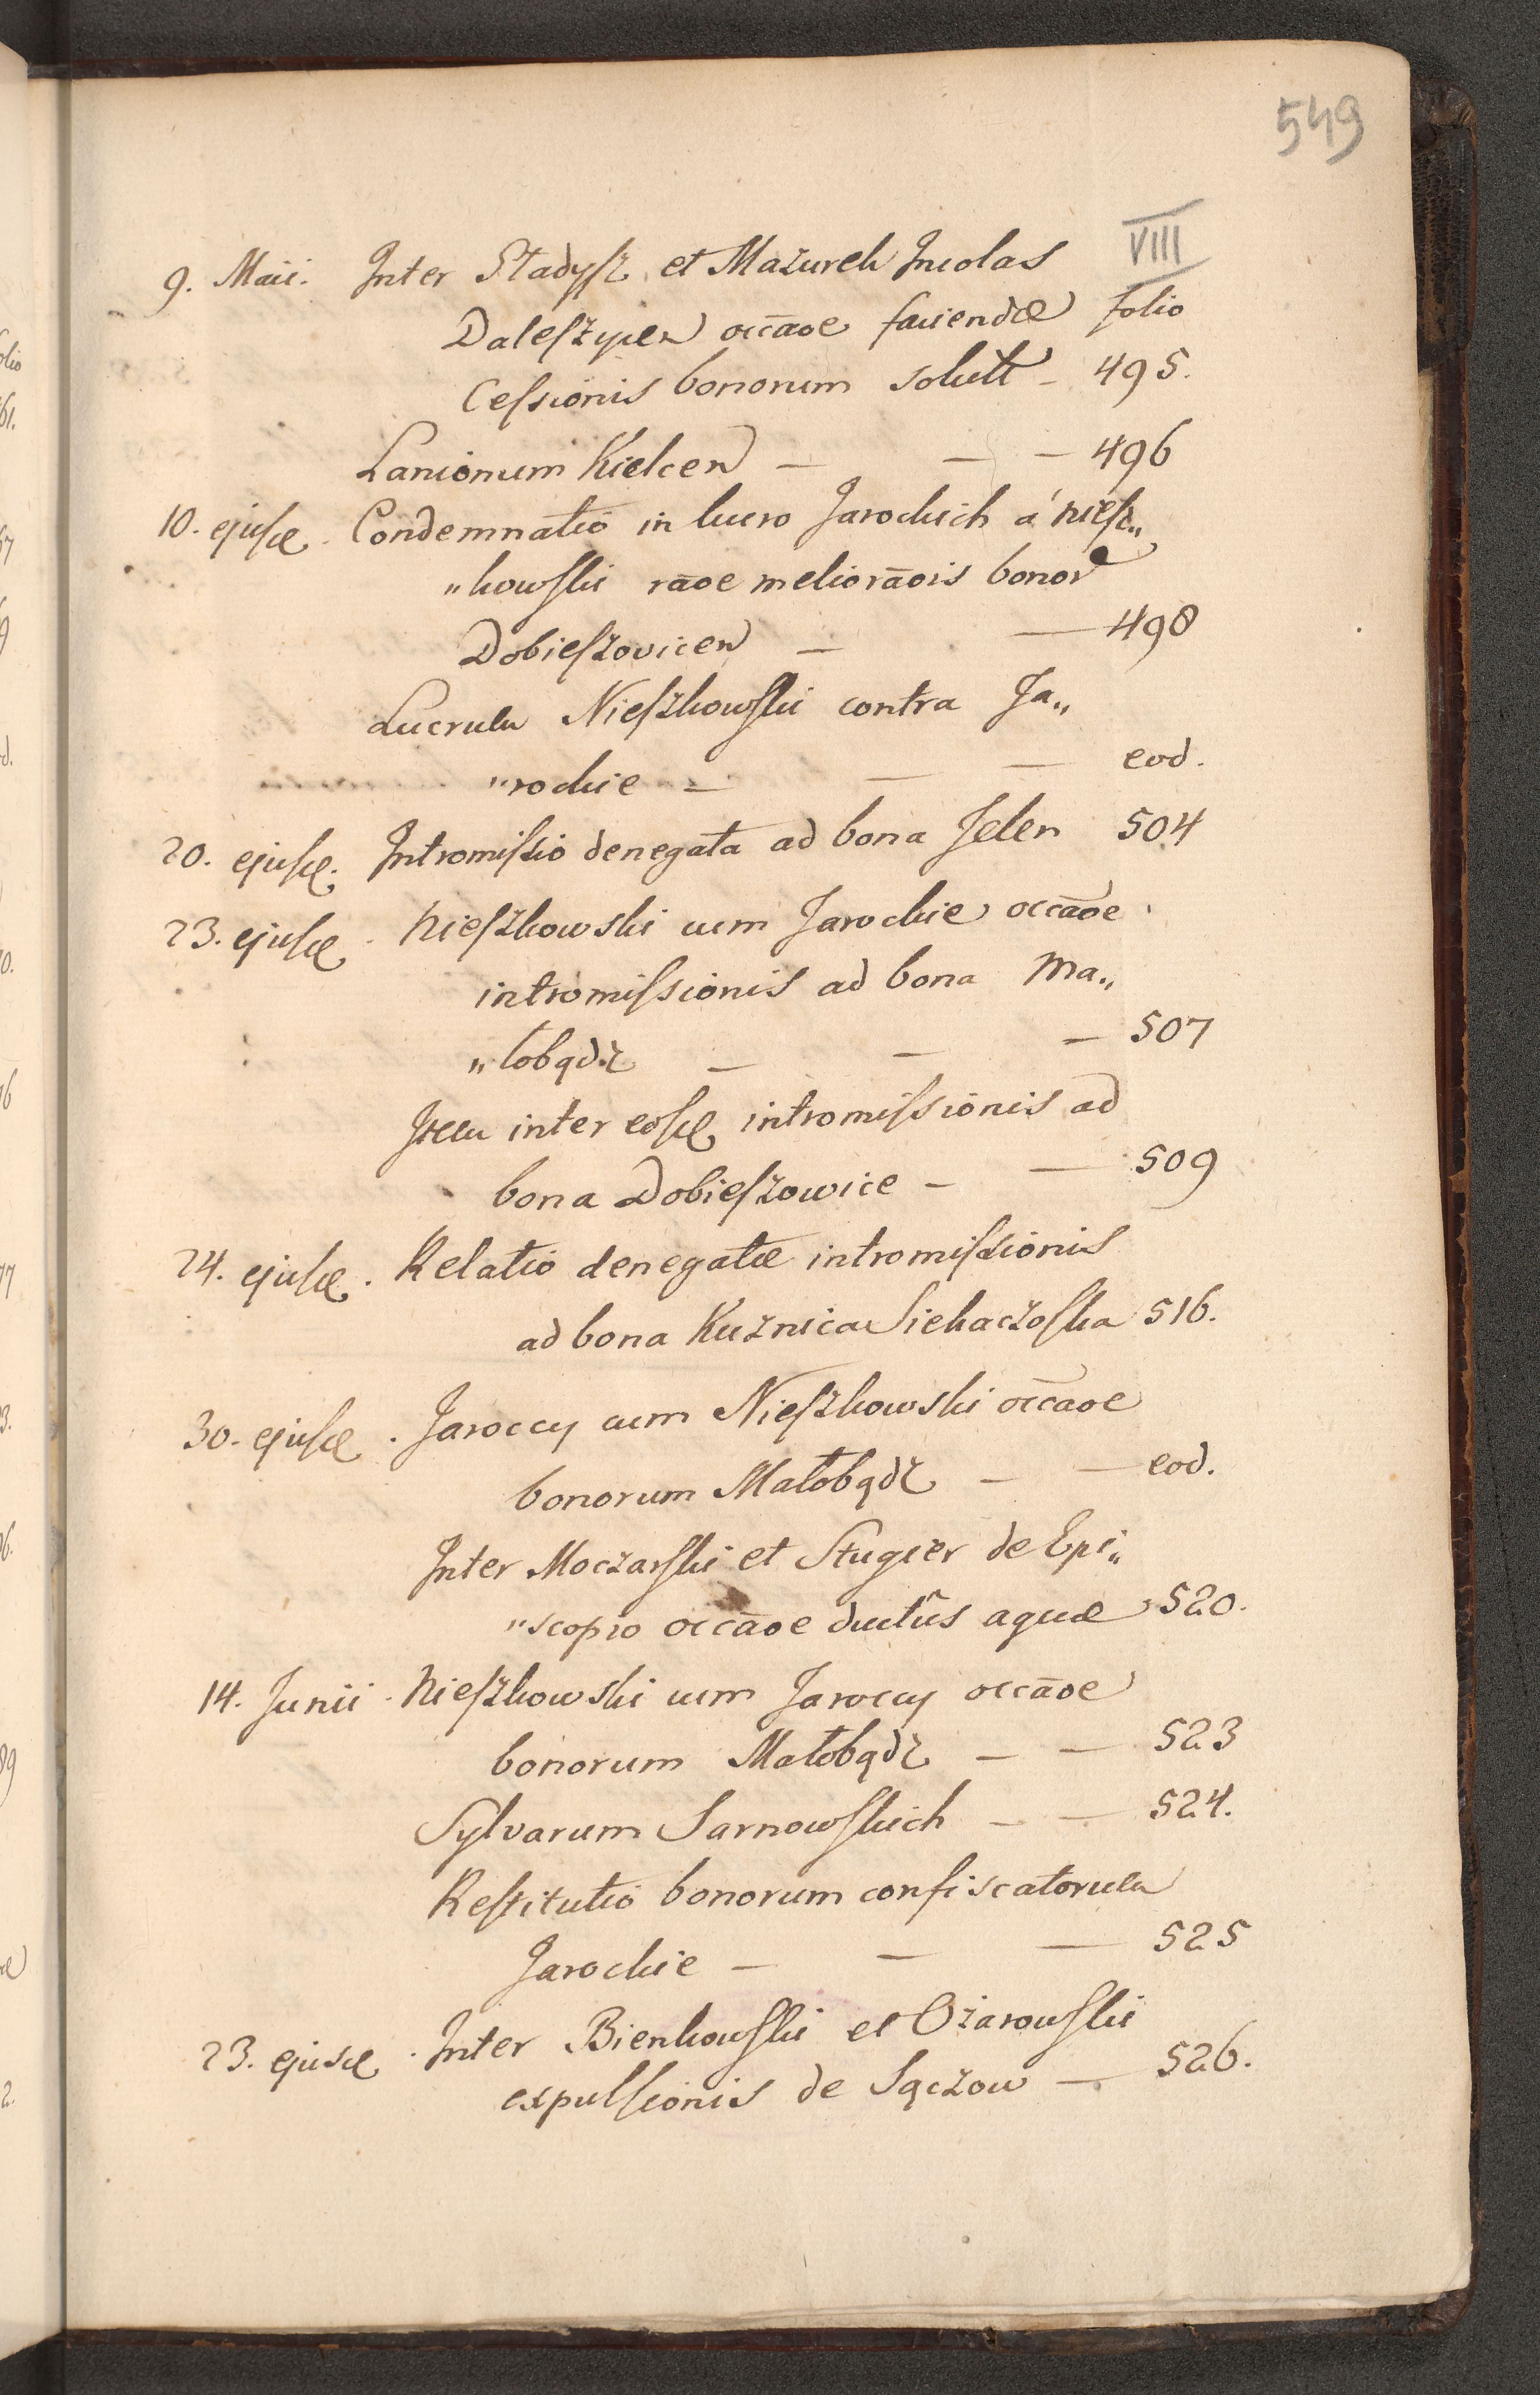 549
VIII
9. Maii. Inter Stadysz et Mazurek Incolas
Daleszycen occãoe faciendæ folio
Cessionis bonorum solutt - 495.
Lanionum Kielcen — — — 496
10. ejusd. Condemnatio in lucro Jarockich á Niesz„
„kowski rãoe meliorãois bonor
Dobieszovicen — — 498
Lucrum Nieszkowski contra Ja„
„rockie — — — eod.
20. ejusd. Intromissio denegata ad bona Jelen 504
23. ejusd. Nieszkowski cum Jarockie occãoe
intromissionis ad bona Ma„
„łobądz — — — 507
Item inter eosd. intromissionis ad
bona Dobieszowice — — 509
24. ejusd. Relatio denegatæ intromissionis
ad bona Kuznica Siekaczoska 516.
30. ejusd. Jaroccy cum Nieszkowski occãoe
bonorum Małobądz — — eod.
Inter Moczarski et Stugier de Epi„
„scopio occãoe ductûs aquæ 520.
14. Junii. Nieszkowski cum Jaroccy occãoe
bonorum Małobądz — — 523
Sylvarum Sarnowskich — — 524.
Restitutio bonorum confiscatorum
Jarockie — — — 525
23. ejusd. Inter Bienkowski et Ożarowski
expulsionis de Sączow — 526.